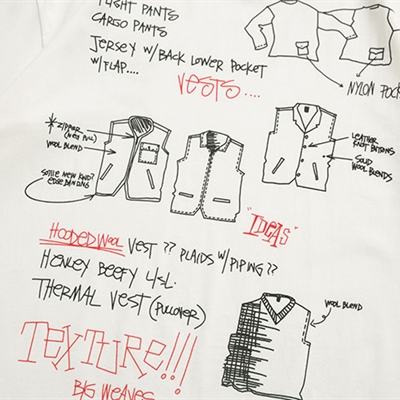 FLIGHT PANTS
CARGO PANTS
JERSEY W/ BACK LOWER POCKET
W/ FLAP....
VESTS....
NYLON POCK
ZIPPER
WOOL BLEND
EDGE BANDING
LEATHER
KNOT BUTTONS
SOLID
WOOL BLENDS
"IDEAS"
HOODED WOOL VEST ?? PLAIDS W/ PIPING ??
HENLEY BEEFY 4 SL.
THERMAL VEST (PULLOVER)
WOOL BLEND
TEXTURE!!!
BIG WEAVES